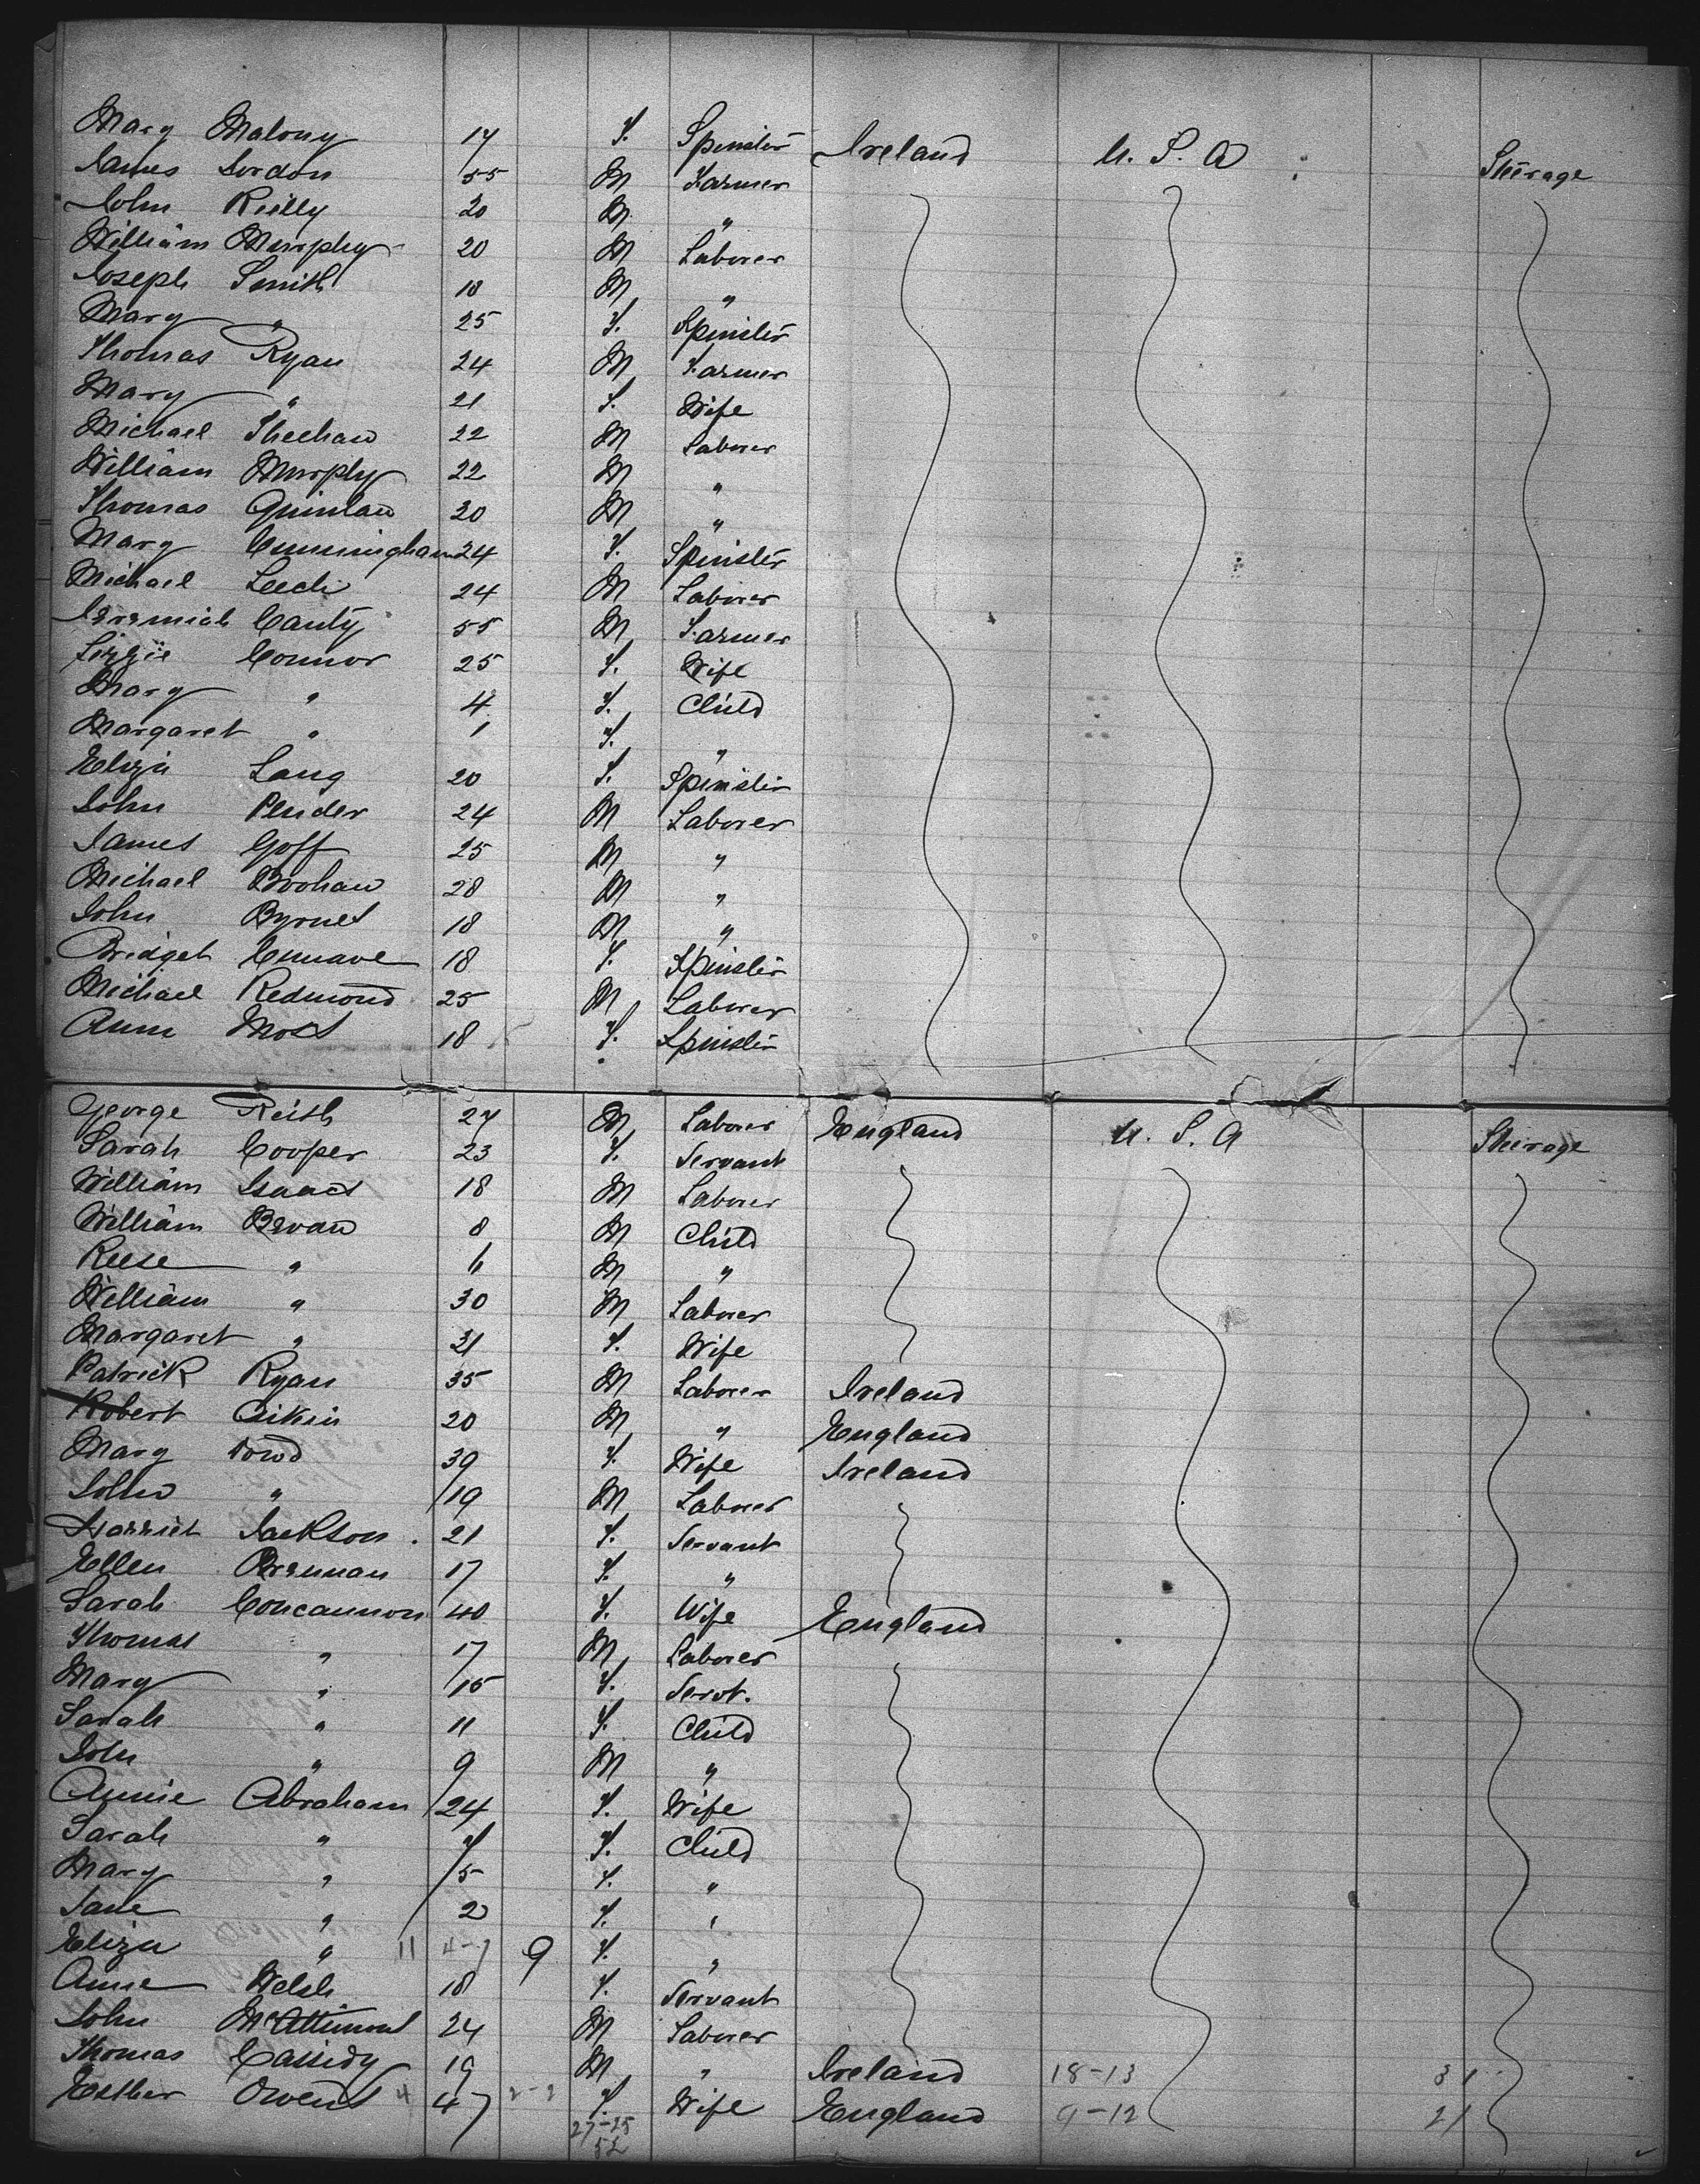 Mary Malony 17 F. Spinster Ireland U. S. A Steerage
James Gordon 55 M Farmer
John Reilly 20 M "
William Murphy 20 M Laborer
Joseph Smith 18 M "
Mary " 25 F. Spinster
Thomas Ryan 24 M Farmer
Mary " 21 F. Wife
Michael Sheehan 22 M Laborer
William Murphy 22 M "
Thomas Quinlan 20 M "
Mary Cunningham 24 F. Spinster
Michael Leech 24 M Laborer
Jeremiah Canty 55 M Farmer
Lizzie Connor 25 F. Wife
Mary " 4 F. Child
Margaret " 1 F. "
Eliza Lang 20 F. Spinster
John Pender 24 M Laborer
James Goff 25 M "
Michael Boohan 28 M "
John Byrnes 18 M "
Bridget Cunnave 18 F. Spinster
Michael Redmond 25 M Laborer
Anne Moss 18 F. Spinster
George Reith 27 M Laborer England U. S. A Steerage
Sarah Cooper 23 F. Servant
William Isaacs 18 M Laborer
William Bevan 8 M Child
Reese " 6 M "
William " 30 M Laborer
Margaret " 31 F. Wife
Patrick Ryan 35 M Laborer Ireland
Robert Aikin 20 M " England
Mary Dowd 39 F. Wife Ireland
John " 19 M Laborer
Harriet Jackson 21 F. Servant
Ellen Brennan 17 F. "
Sarah Concannon 40 F. Wife England
Thomas " 17 M Laborer
Mary " 15 F. Servt.
Sarah " 11 F. Child
John " 9 M "
Annie Abraham 24 F. Wife
Sarah " 7 F. Child
Mary " 5 F. "
Jane " 2 F. "
Eliza " 11 9 F. "
Anne Welsh 18 F. Servant
John 24 M Laborer
Thomas Cassidy 19 M " Ireland 18-13 31
Esther Owens 4 47 2-2 F. Wife England 9-12 21
27-25
52